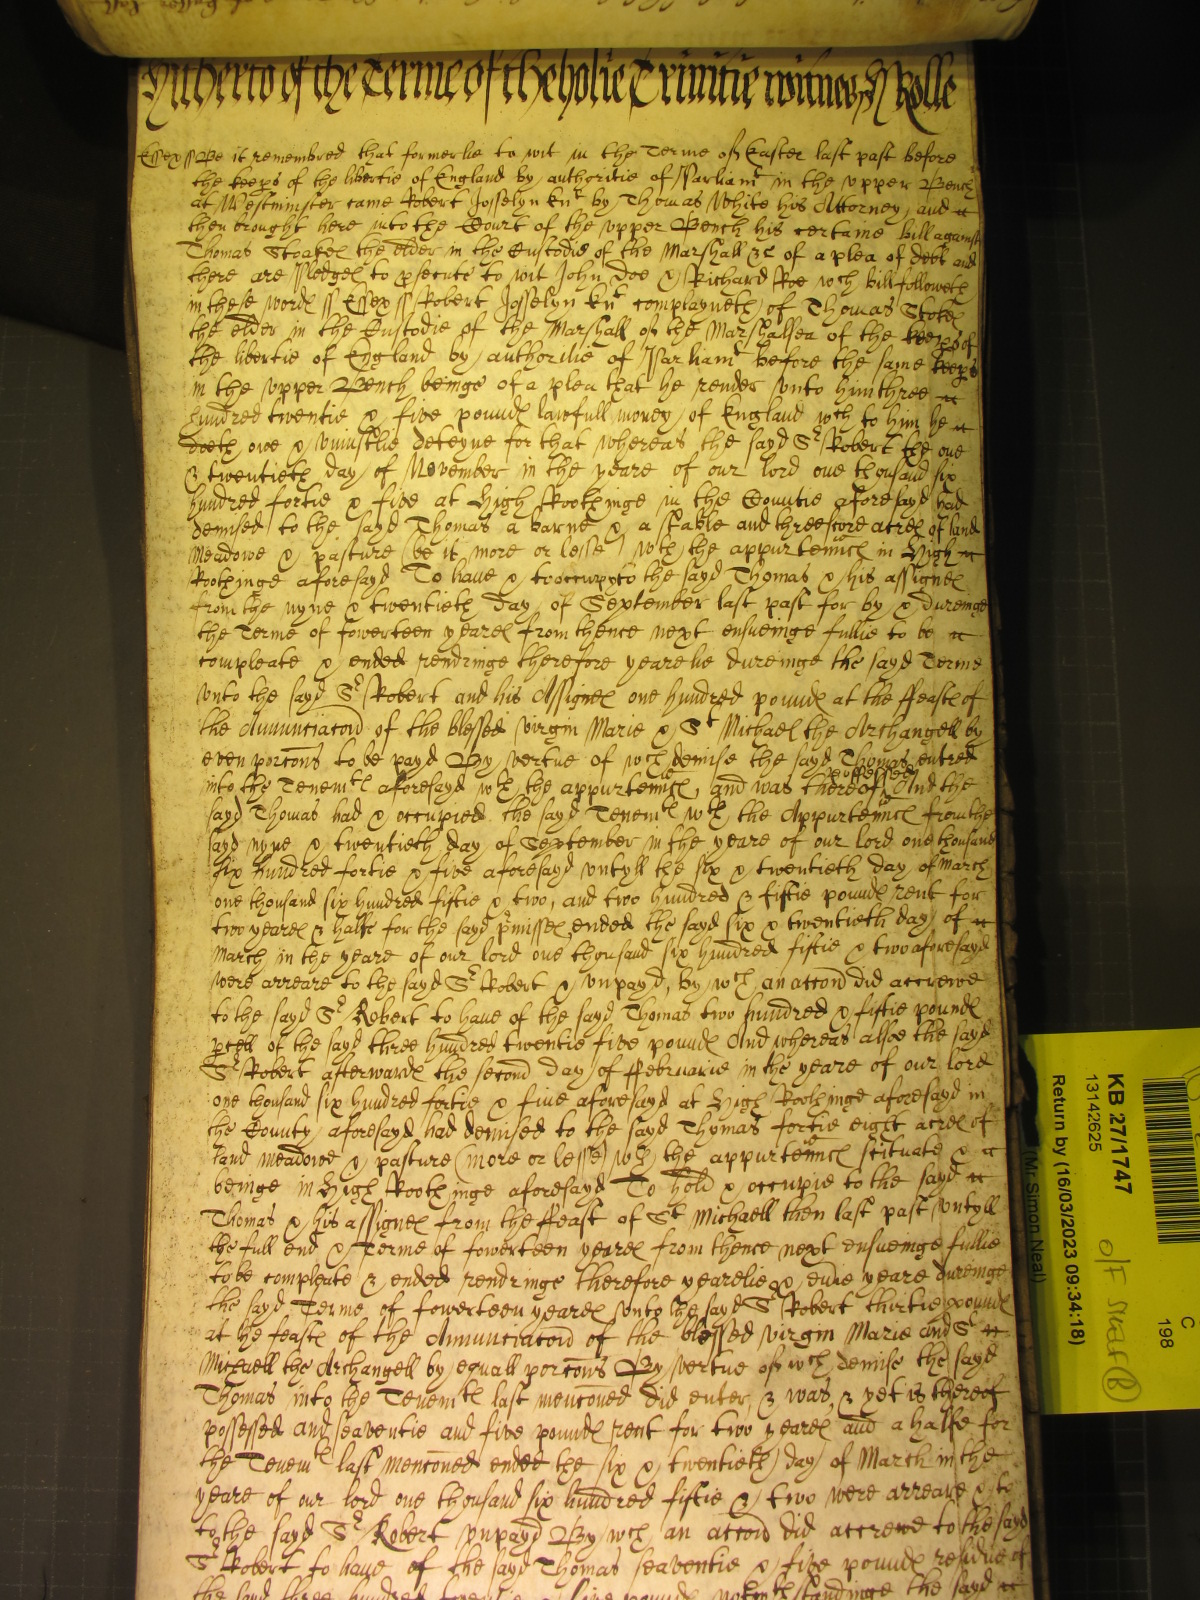 Hitherto of the Terme of the holie Trinitie witness Rolle
Essex ss Be it remembred that formerlie to wit in the Terme of Easter last past before
the keeps of the libertie of England by authoritie of Parliamt in the upper Bench
at Westminster came Robert Josselyn Knt by Thomas White his Attorney and
then brought here into the Court of the upper Bench his certaine bill against
Thomas the elder in the Custodie of the Marshall &c of a plea of debt and
there are Pledges to psecute to wit John Doe & Richard Roe wch bill followeth
in these words ss Essex ss Robert Josselyn Knt complayneth of Thomas
the elder in the Custodie of the Marshall of the Marshalsea of the keeps of
the libertie of England by authoritie of Parliamt before the same keeps
in the upper Bench beinge of a plea that he render unto him three
hundred twentie & five pounds lawfull money of England wch to him he
oweth owe & uniustlie deteyne for that whereas the sayd Sr Robert the one
& twentieth day of November in the yeare of our lord one thousand six
hundred fortie & five at High Roothinge in the Countie aforesayd had
demised to the sayd Thomas a barne & a stable and threescore acres of land
Meadowe & pasture (be it more or lesse) wth the appurtennces in High
Roothinge aforesayd To have & to occupy to the sayd Thomas & his assignes
from the nyne & twentieth day of September last past for by & dureinge
the Terme of fowerteen yeares from thence next ensueinge fullie to be
compleate & ended rendringe therefore yearelie dureinge the sayd Terme
unto the sayd Sr Robert and his Assignes one hundred pounds at the ffeasts of
the Annunciacoid of the blessed virgin Marie & St Michael the Archangell by
even porcons to be payd By vertue of wch demise the sayd Thomas entred
into the Tenemts aforesayd wth the appurtennces and was thereof possessed And the
sayd Thomas had & occupied the sayd Tenemts wth the Appurtennces from the
sayd nyne & twentieth day of September in the yeare of our lord one thousand
six hundred fortie & five aforesayd untyll the six & twentieth day of March
one thousand six hundred fiftie & two, and two hundred & fiftie pounds rent for
two yeares & halfe for the sayd pmisses ended the sayd six & twentieth day of
March in the yeare of our lord one thousand six hundred fiftie & two aforesayd
were arreare to the sayd Sr Robert & unpayd, by wch an accond did accrewe
to the sayd Sr Robert to have of the sayd Thomas two hundred & fiftie pounds
pcell of the sayd three hundred twentie five pounds And whereas alsoe the sayd
Sr Robert afterwards the second day of ffebruarie in the yeare of our lord
one thousand six hundred fortie & five aforesayd at High Roothinge aforesayd in
the County aforesayd had demised to the sayd Thomas fortie eight acres of
land meadowe & pasture (more or lesse) wth the appurtennces scituate &
beinge in High Roothinge aforesayd To hold & occupie to the sayd
Thomas & his assignes from the ffeast of St Michaell then last past untyll
the full end & Terme of fowerteen yeares from thence next ensueinge fullie
to be compleate & ended rendringe therefore yearelie & everie yeare dureinge
the sayd Terme of fowerteen yeares unto the sayd Sr Robert thirtie pounds
at the feasts of the Annunciacoid of the blessed virgin Marie and St
Michaell the Archangell by equall porcons By vertue of wch demise the sayd
Thomas into the Tenemts last menconed did enter & was & yet is thereof
possessed and seaventie and five pounds rent for two yeares and a halfe for
the Tenemts last menconed ended the six & twentieth day of March in the
yeare of our lord one thousand six hundred fiftie & two were arreare & to
to the sayd Sr Robert unpayd By wch an accoid did accrewe to the sayd
Sr Robert to have of the sayd Thomas seaventie & five pounds residue of
the sayd three hundred twentie & five pounds notwthstandinge the sayd
KB 27/1747
13142625
Return by (16/03/2023 09:34:18)
(Mr Simon Neal)
C
198